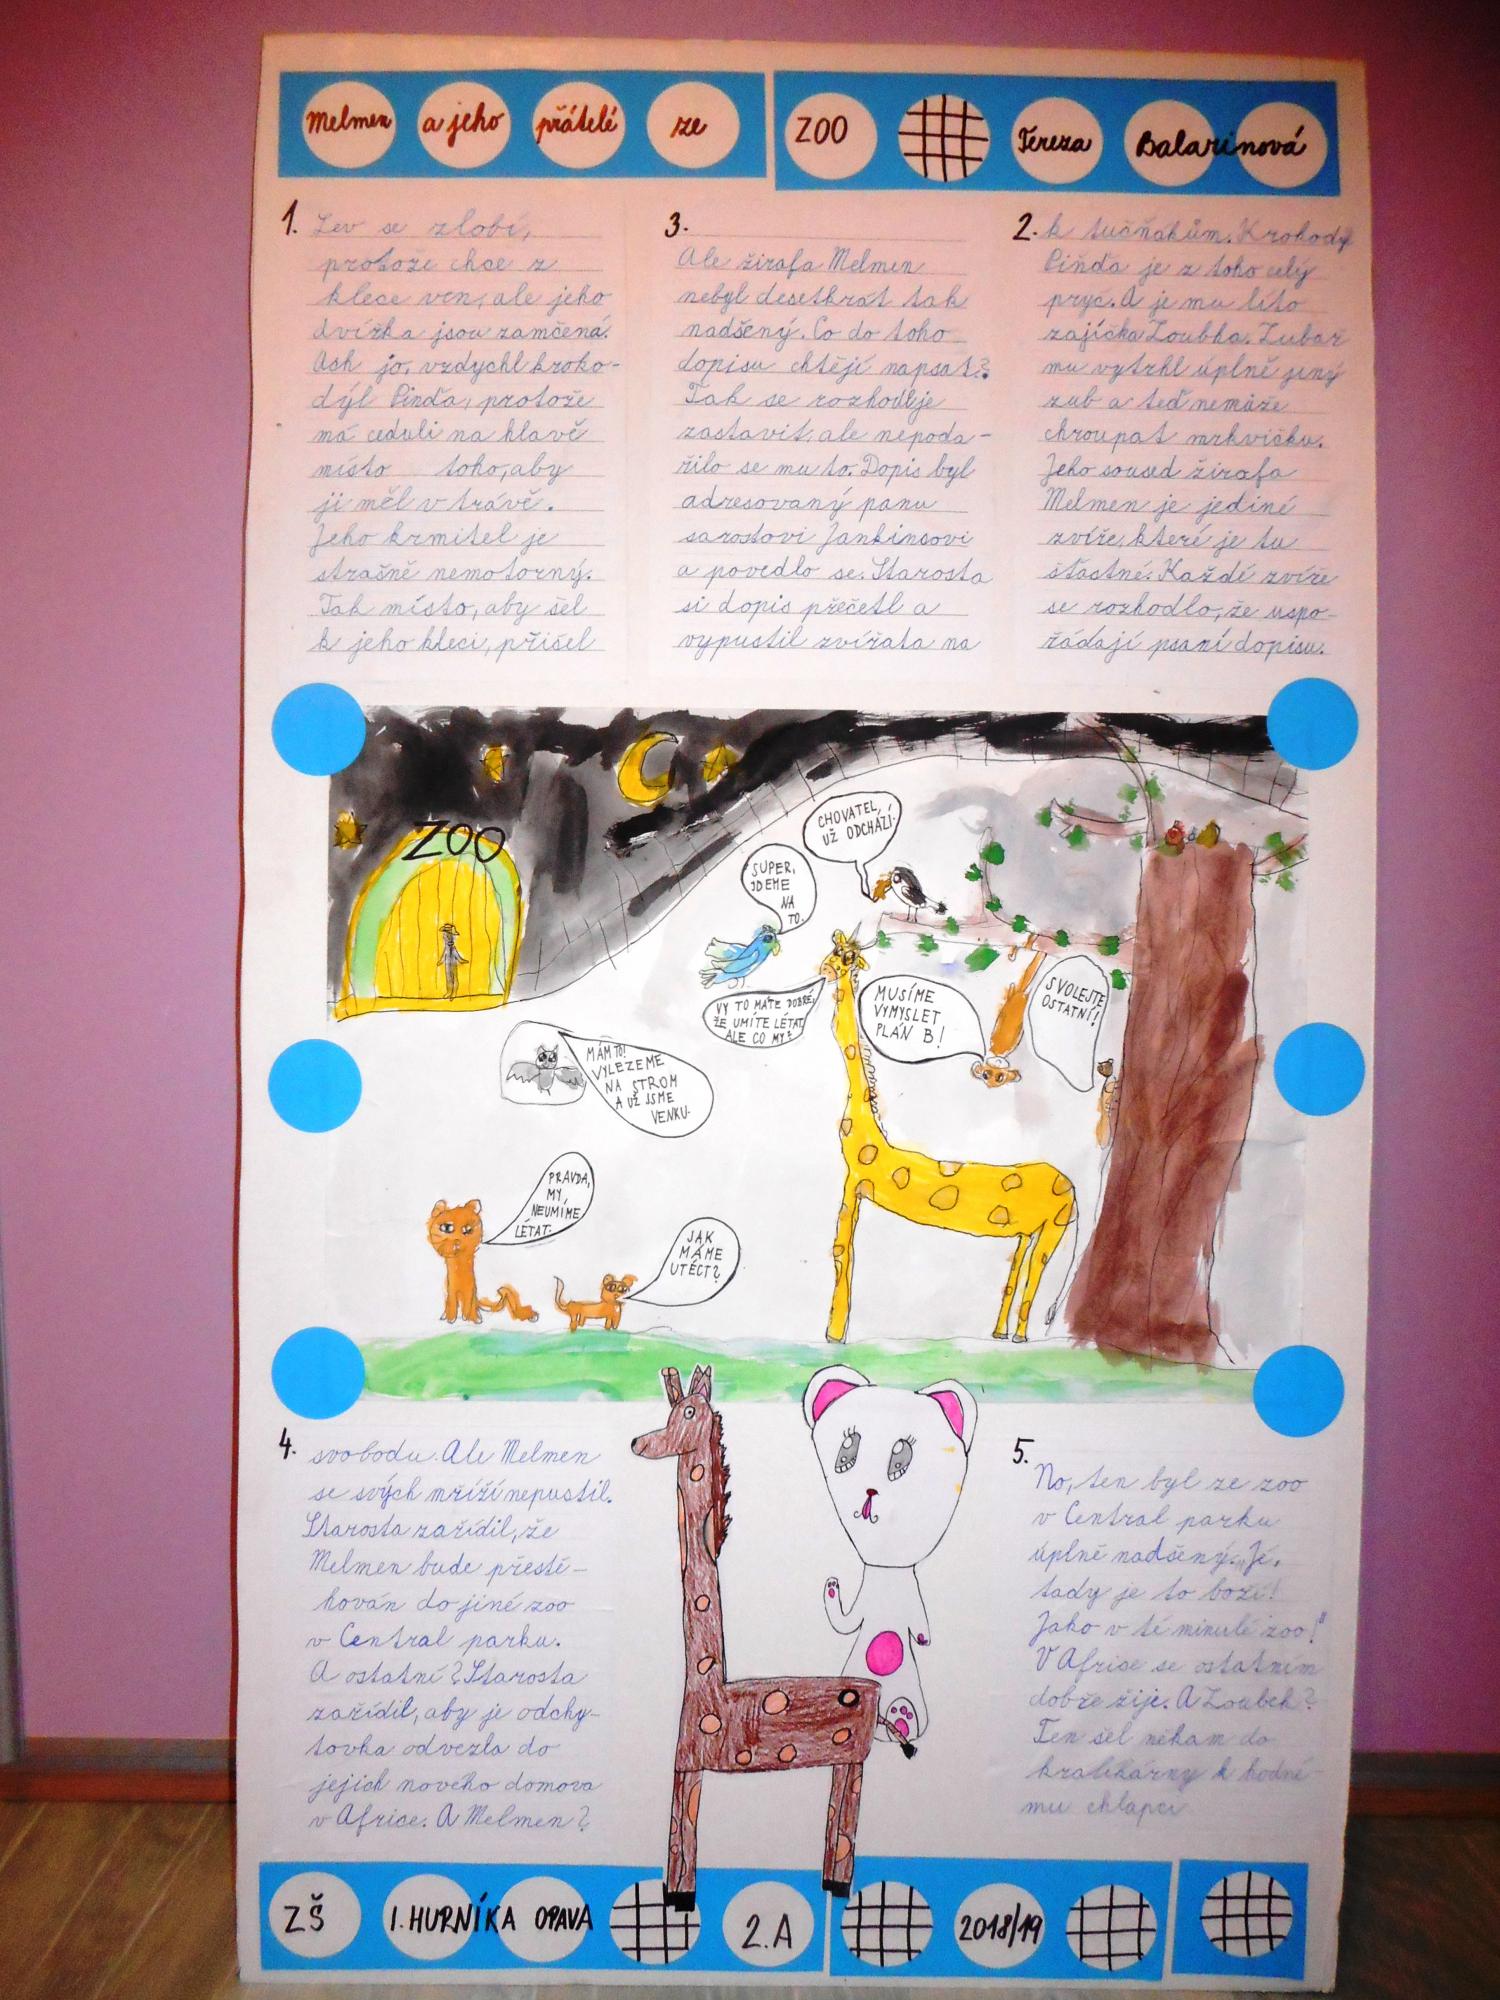 Melmen a jeho přátelé ze ZOO Tereza Balarinová
1. Lev se zlobí,
protože chce z
klece ven, ale jeho
dvířka jsou zamčená.
Ach jo, vzdychl kroko-
dýl Pinďa, protože
má ceduli na hlavě
místo toho, aby
ji měl v trávě.
Jeho krmitel je
strašně nemotorný.
Tak místo, aby šel
k jeho kleci, přišel
2. k tučňákům. Krokodýl
Pinďa je z toho celý
pryč. A je mu líto
zajíčka Zoubka. Zubař
mu vytrhl úplně jiný
zub a teď nemůže
chroupat mrkvičku.
Jeho soused žirafa
Melmen je jediné
zvíře, které je tu
šťastné. Každé zvíře
se rozhodlo, že uspo-
řádají psaní dopisu.
3.
Ale žirafa Melmen
nebyl desetkrát tak
nadšený. Co do toho
dopisu chtějí napsat?
Tak se rozhoduje
zastavit, ale nepoda-
řilo se mu to. Dopis byl
adresovaný panu
sarostovi Jankinsovi
a povedlo se. Starosta
si dopis přečetl a
vypustil zvířata na
ZOO
CHOVATEL,
UŽ ODCHÁZÍ.
SUPER,
JDEME
NA
TO.
VY TO MÁTE DOBRÉ,
ŽE UMÍTE LÉTAT,
ALE CO MY?
MUSÍME
VYMYSLET
PLÁN B!
SVOLEJTE
OSTATNÍ!
MÁM TO!
VYLEZEME
NA STROM
A UŽ JSME
VENKU.
PRAVDA,
MY
NEUMÍME
LÉTAT.
JAK
MÁME
UTÉCT?
4. svobodu. Ale Melmen
se svých mříží nepustil.
Starosta zařídil, že
Melmen bude přestě-
hován do jiné zoo
v Central parku.
A ostatní? Starosta
zařídil, aby je odchy-
tovka odvezla do
jejich nového domova
v Africe. A Melmen?
5.
No, ten byl ze zoo
v Central parku
úplně nadšený. „Jé,
tady je to boží!
Jako v té minulé zoo!"
V Africe se ostatním
dobře žije. A Zoubek?
Ten šel někam do
králikárny k hodné-
mu chlapci
ZŠ I. HURNÍKA OPAVA 2.A 2018/19